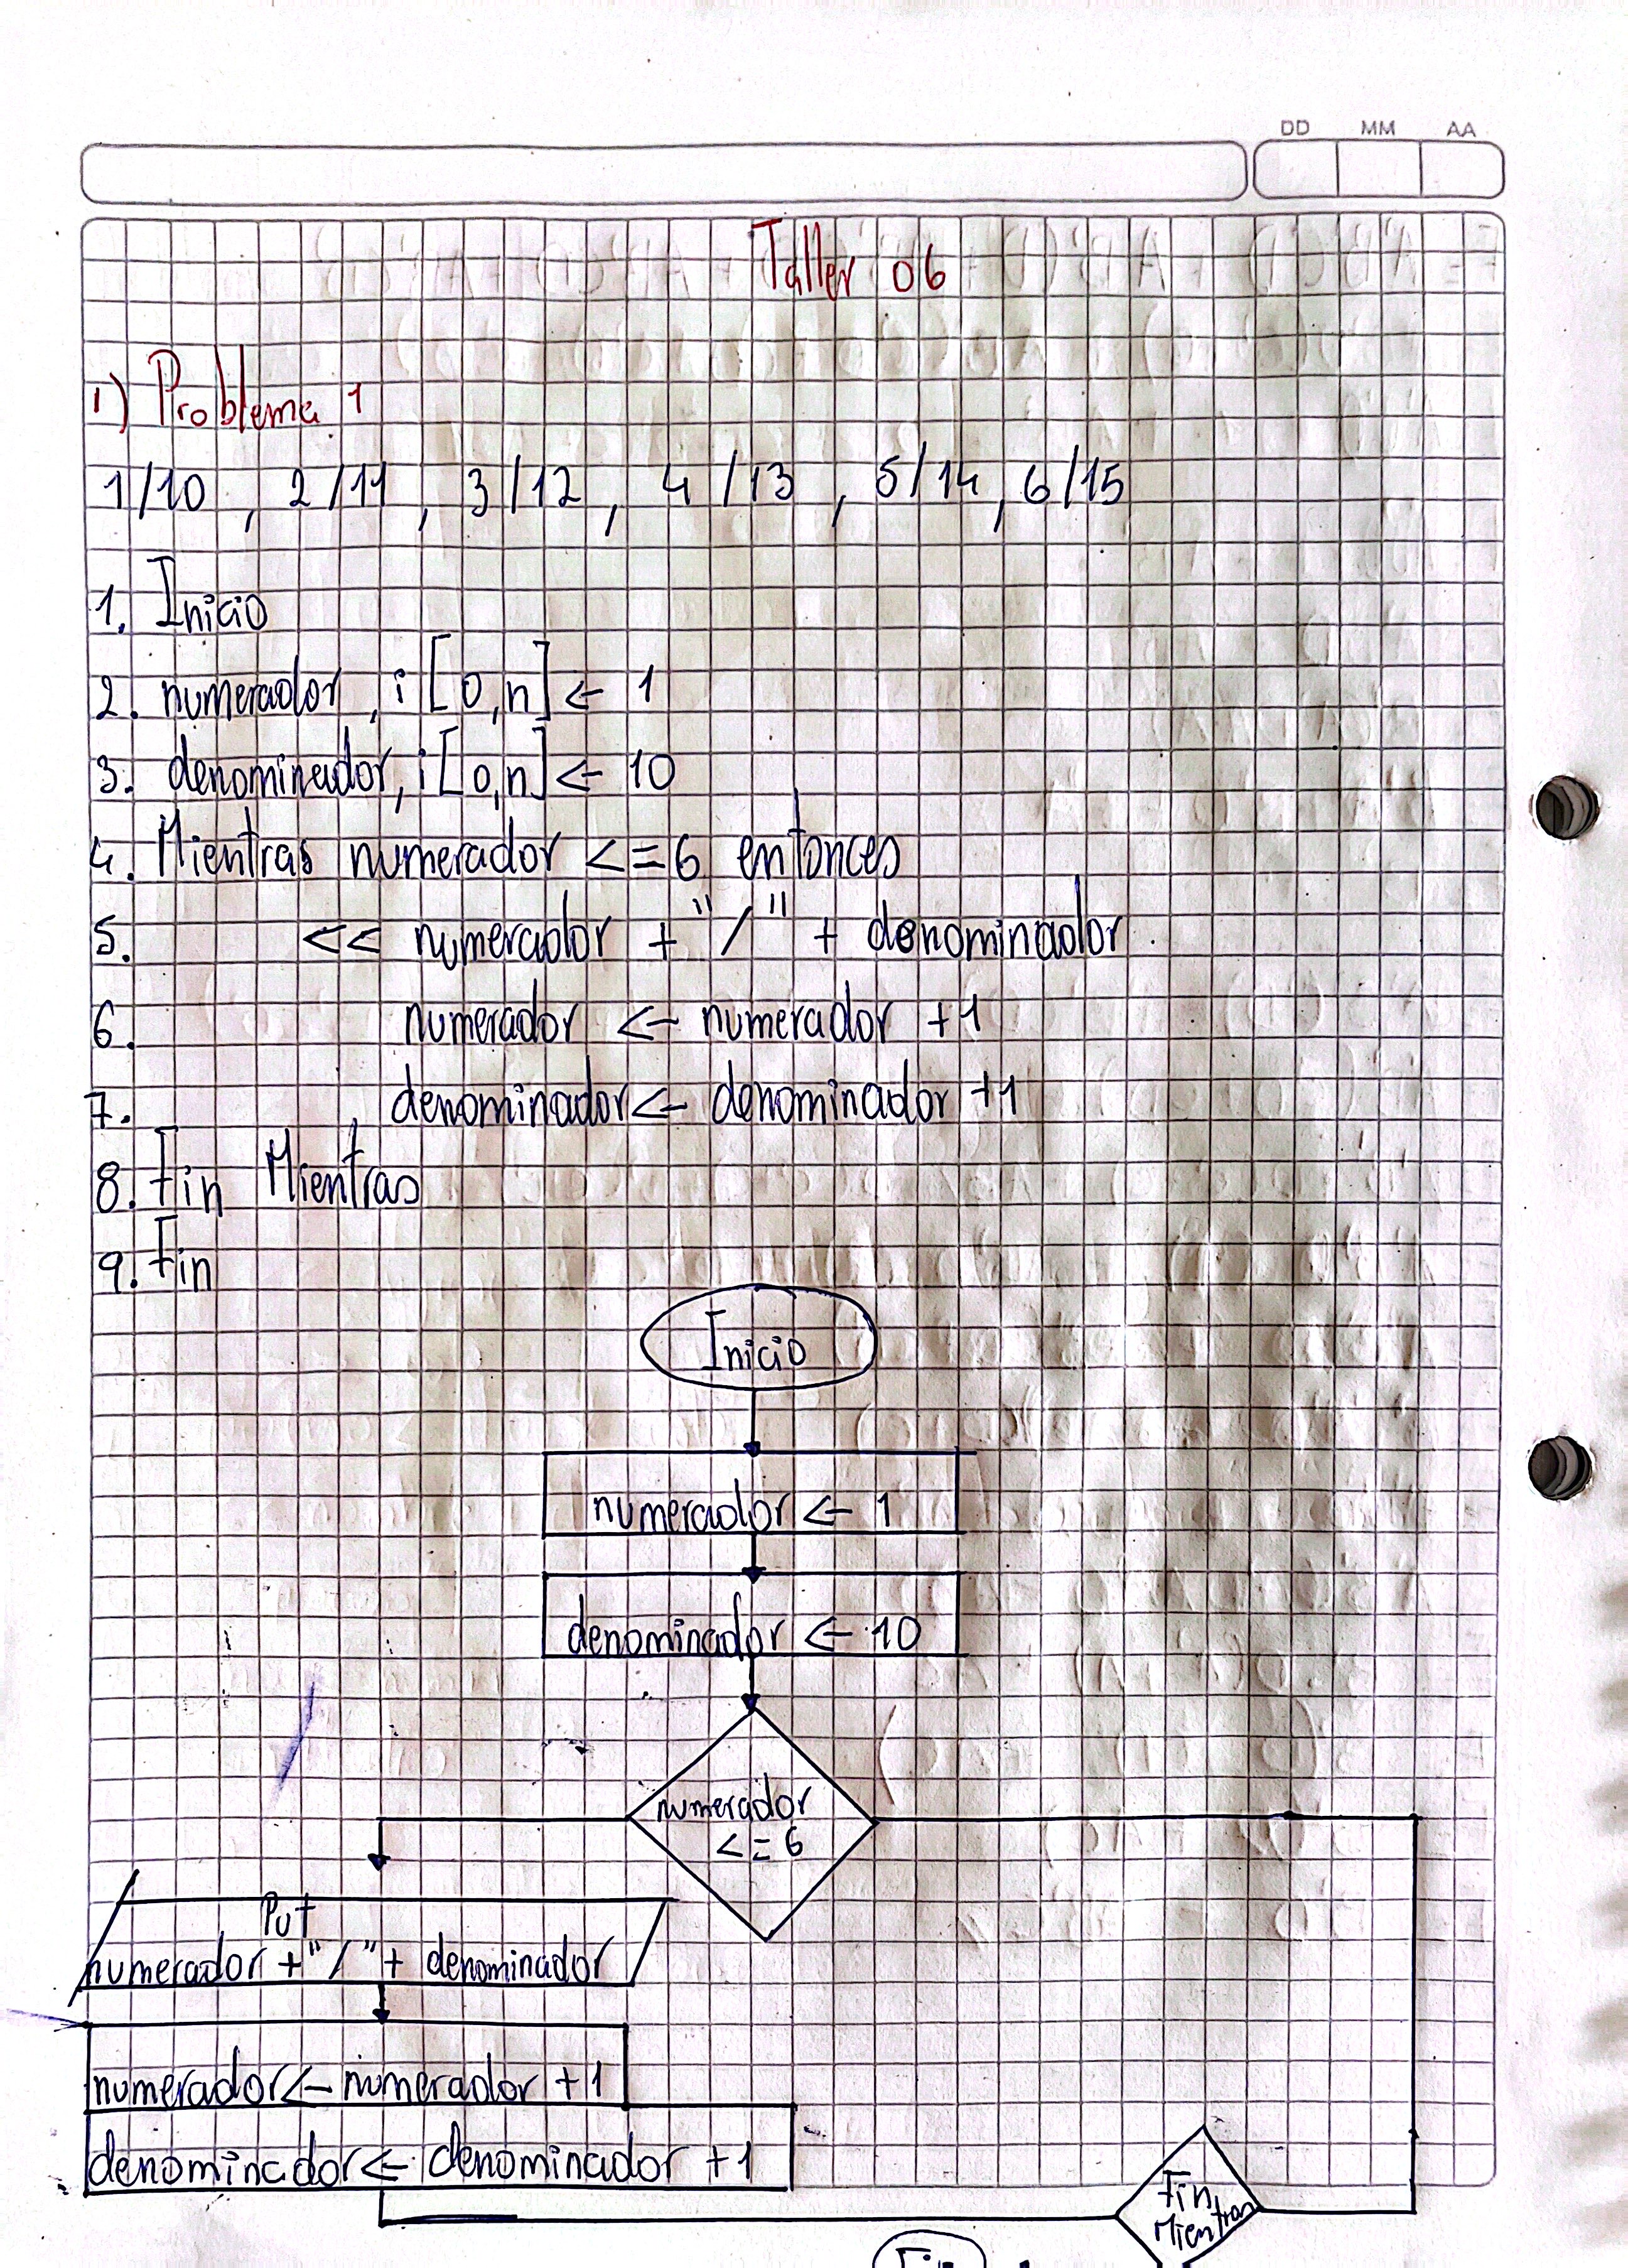 DD MM AA
Taller 06
1) Problema 1
1/10 , 2/11 , 3/12 , 4/13 , 5/14 , 6/15
1. Inicio
2. numerador, i [0,n] <- 1
3. denominador, i [0,n] <- 10
4. Mientras numerador <=6 entonces
5. << numerador + "/" + denominador
6. numerador <- numerador +1
7. denominador <- denominador +1
8. Fin Mientras
9. Fin
Inicio
numerador <- 1
denominador <- 10
numerador
<= 6
Put
numerador + "/" + denominador
numerador <- numerador +1
denominador <- denominador +1
Fin
Mientras